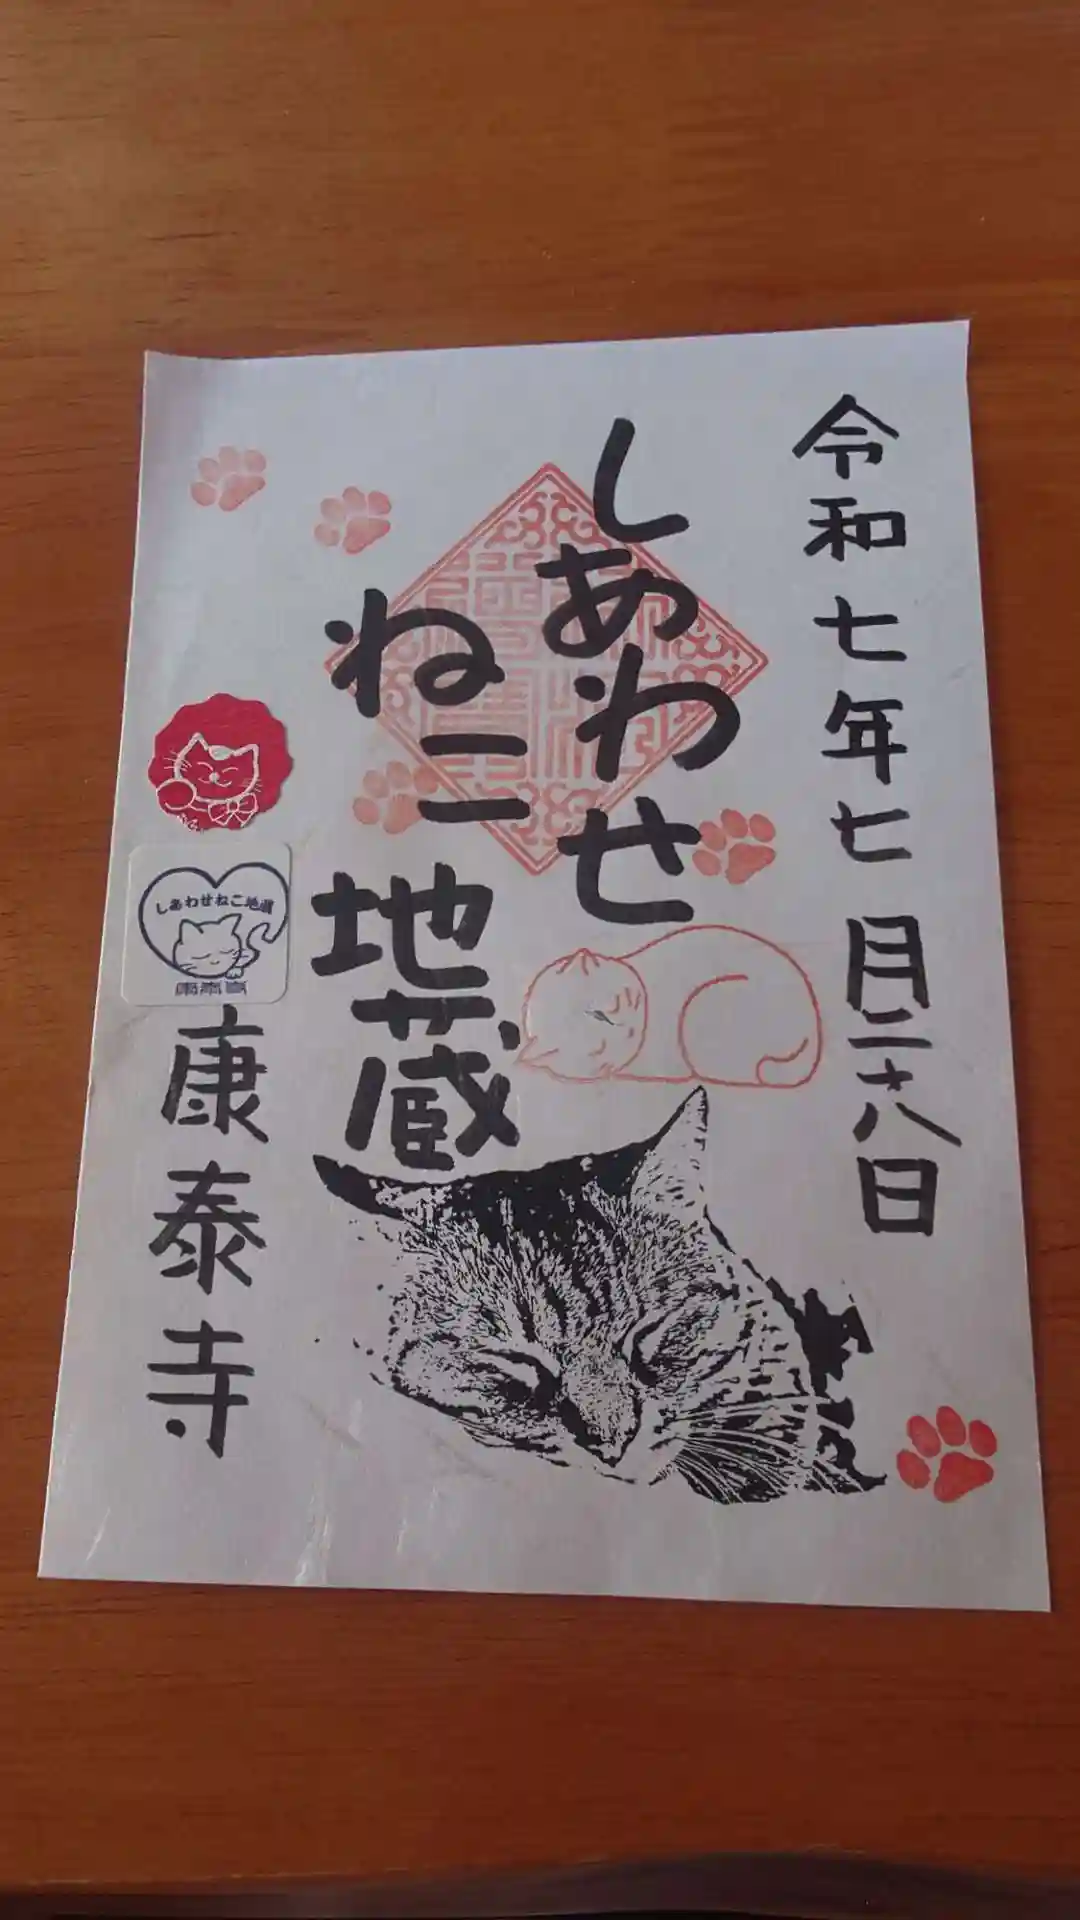 令和七年七月二十八日
しあわせ
ねこ
地蔵
しあわせねこ地蔵
康泰寺